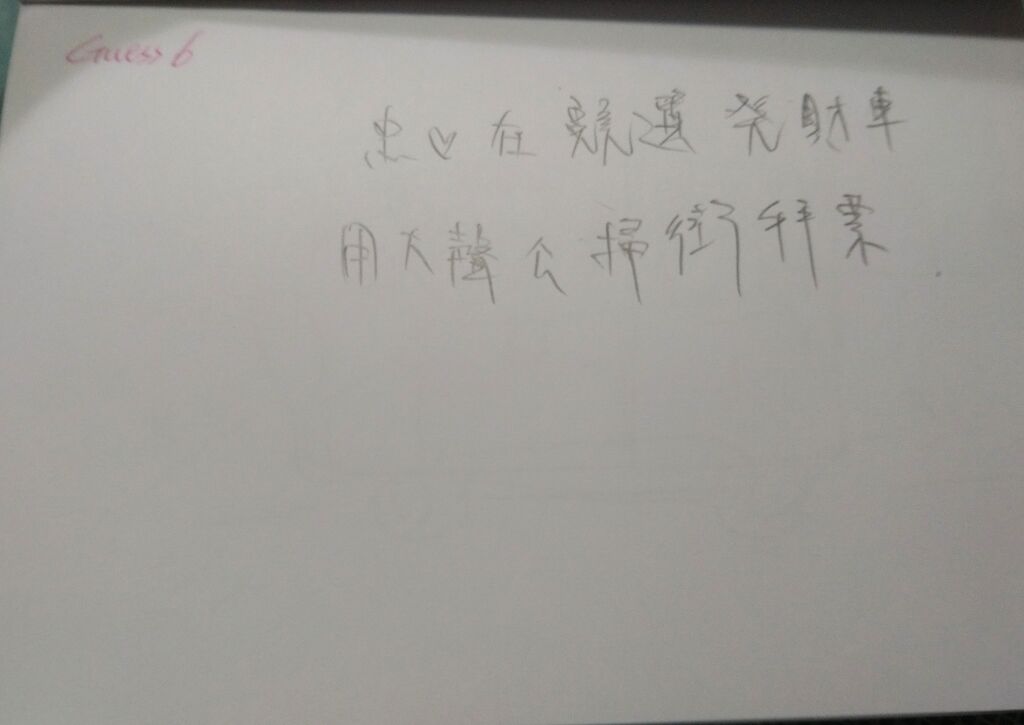 Guess 6
忠♡在競選発財車
用大聲公掃街拜票.